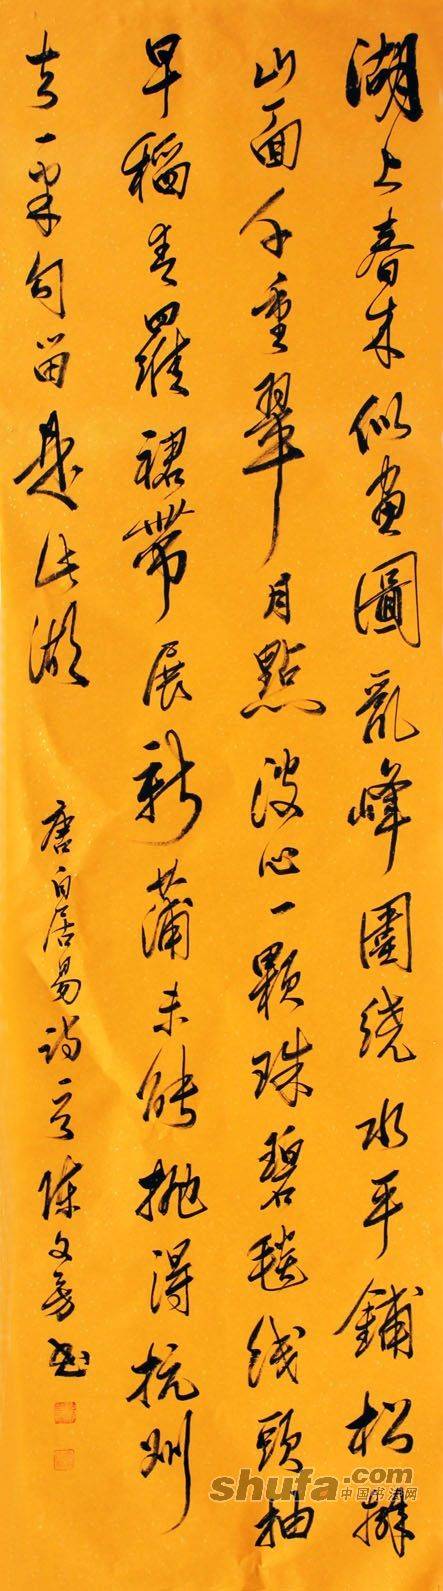 湖上春来似畫圖亂峰圍绕水平鋪松排
山面千重翠月點波心一顆珠碧毯线頭抽
早稻青羅裙帶展新蒲未能抛得杭州
去一半勾留是此湖
唐白居易诗 陈文 书
shufa.com
中国书法网